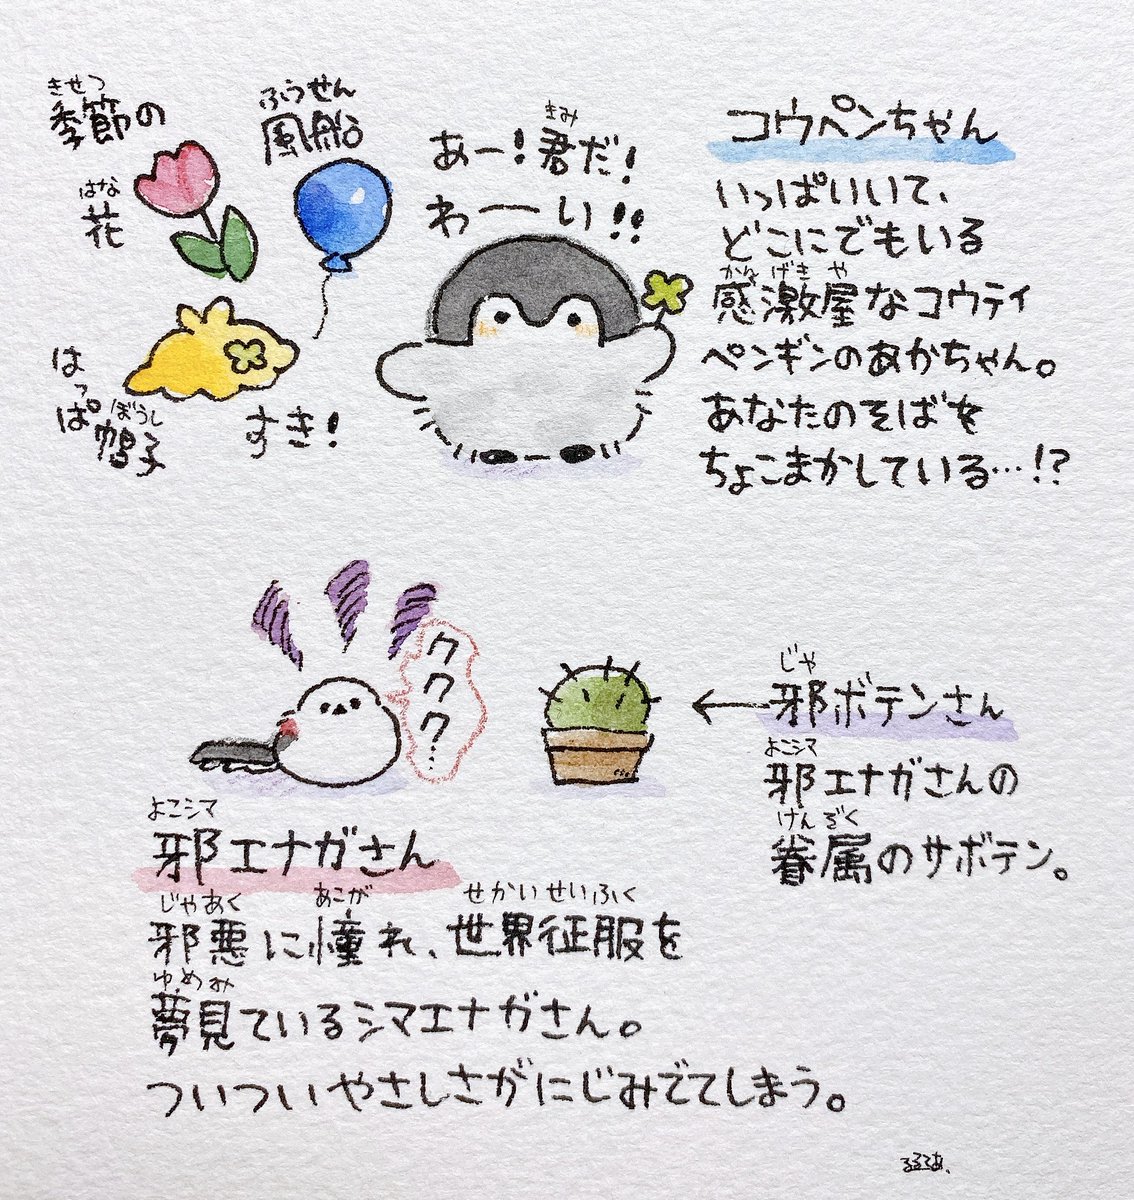 きせつ
季節の
はな
花
ふうせん
風船
はっぱ
ぼうし
帽子
すき!
きみ
あー!君だ!
わーい!!
コウペンちゃん
いっぱいいて、
どこにでもいる
かんげきや
感激屋なコウテイ
ペンギンのあかちゃん。
あなたのそばを
ちょこまかしている…!?
ククク…
じゃ
邪ボテンさん
よこシマ
邪エナガさんの
けんぞく
眷属のサボテン。
よこシマ
邪エナガさん
じゃあく あこが せかいせいふく
邪悪に憧れ、世界征服を
ゆめみ
夢見ているシマエナガさん。
ついついやさしさがにじみでてしまう。
るるてあ、